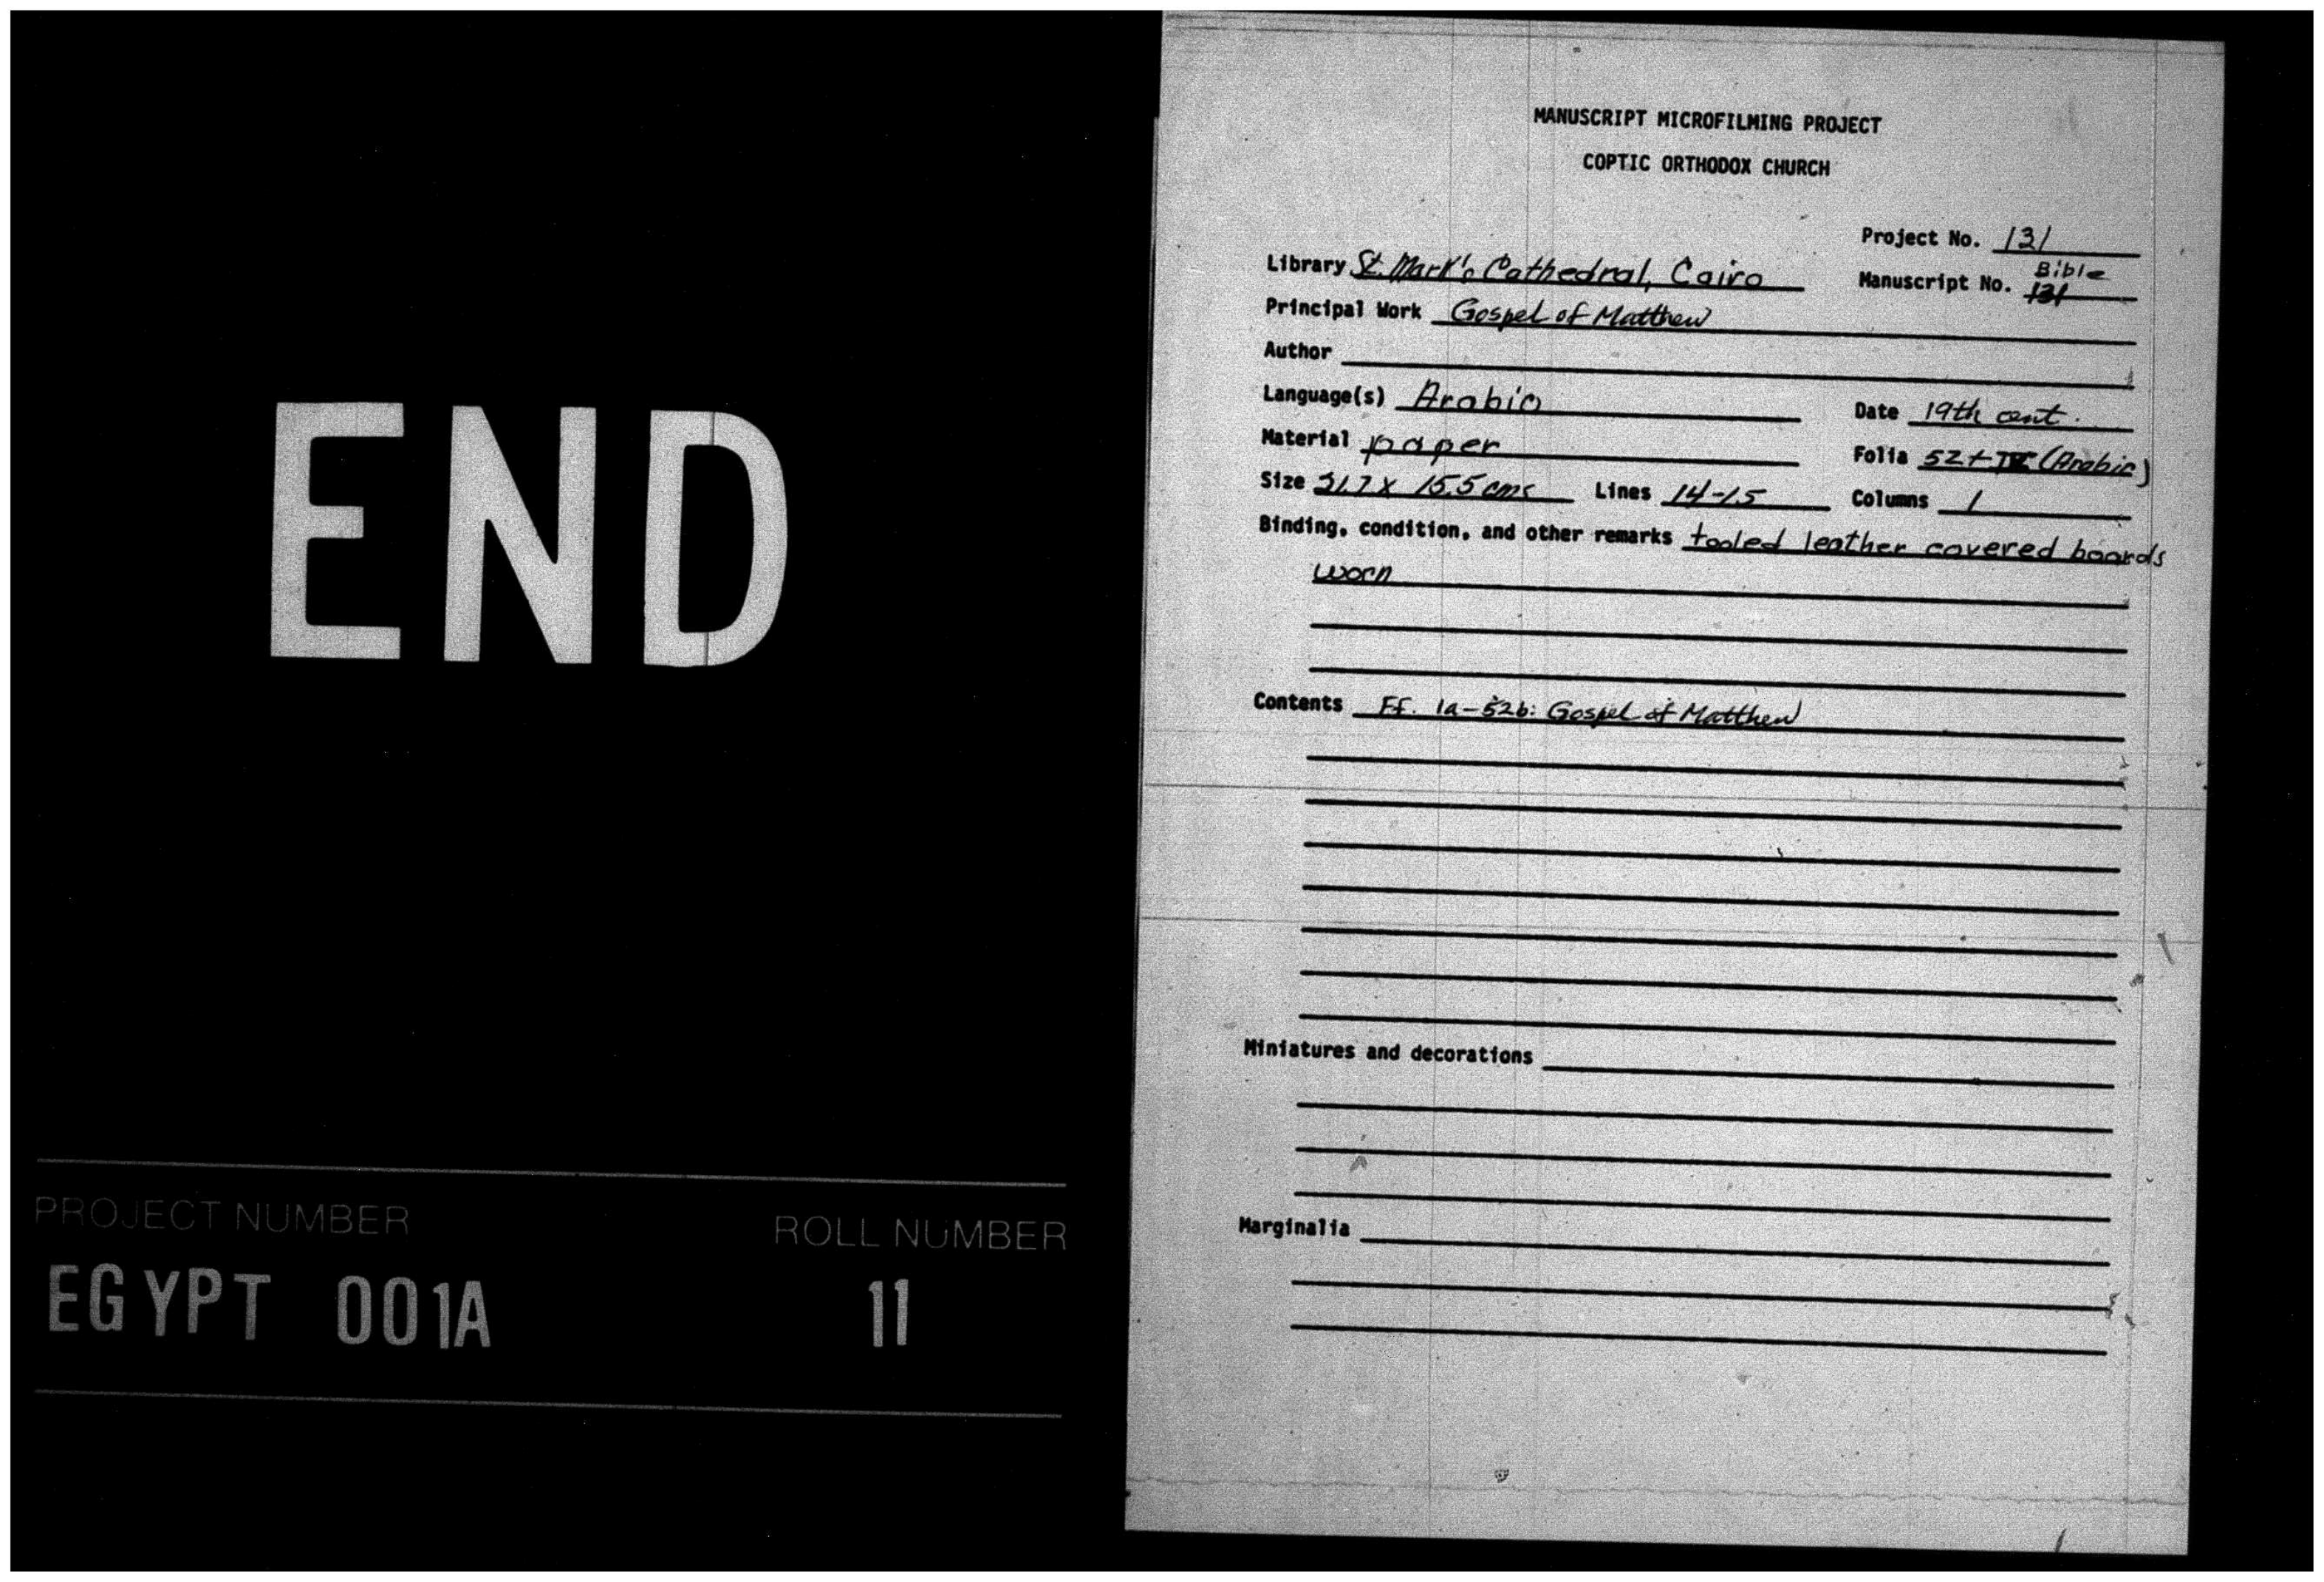 END
PROJECT NUMBER
ROLL NUMBER
EGYPT 001A
11
MANUSCRIPT MICROFILMING PROJECT
COPTIC ORTHODOX CHURCH
Project No. 131
Library St. Mark's Cathedral, Cairo
Manuscript No. Bible 131
Principal Work Gospel of Matthew
Author
Language(s) Arabic
Date 19th cent.
Material paper
Folia 52 + (Arabic)
Size x 15.5 cms
Lines 14-15
Columns 1
Binding, condition, and other remarks tooled leather covered boards
worn
Contents Ff. 1a-52b: Gospel of Matthew
Miniatures and decorations
Marginalia